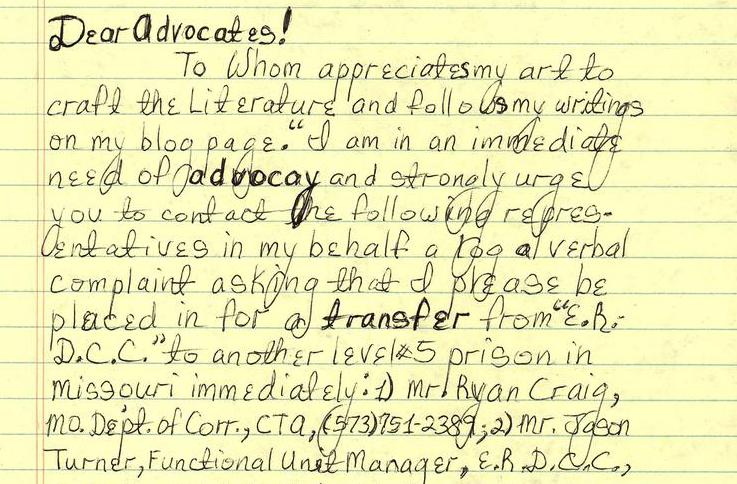 Dear Advocates!
To Whom appreciates my art to
craft the Literature and follows my writings
on my blog page. "I am in an immediate
need of advocay and strongly urge
you to contact the following repres-
entatives in my behalf a log a verbal
complaint asking that I please be
placed in for a transfer from "E.R.
D.C.C." to another level #5 prison in
missouri immediately: 1) Mr. Ryan Craig,
MO. Dept. of Corr., CTA, (573)751-2389; 2) Mr. Jason
Turner, Functional Unit Manager, E.R.D.C.C.,